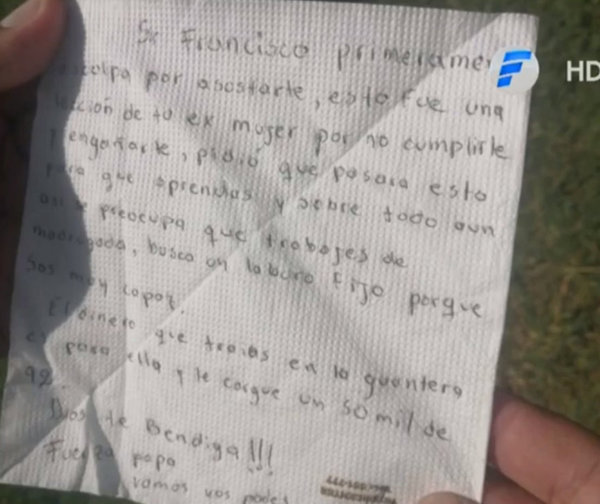 Sr Francisco primerame
sculpa por asustarte, esto fue una
lección de tu ex mujer por no cumplirle
engañarle, pidió que pasara esto
para que aprendas y sobre todo aun
así le preocupa que trabajes de
madrugada, busca un laburo fijo porque
sos muy capaz.
El dinero que traías en la guantera
es para ella y te cargue un 50 mil de
92.
Dios te Bendiga!!!
Fuerza papa
vamos vos podes
HD